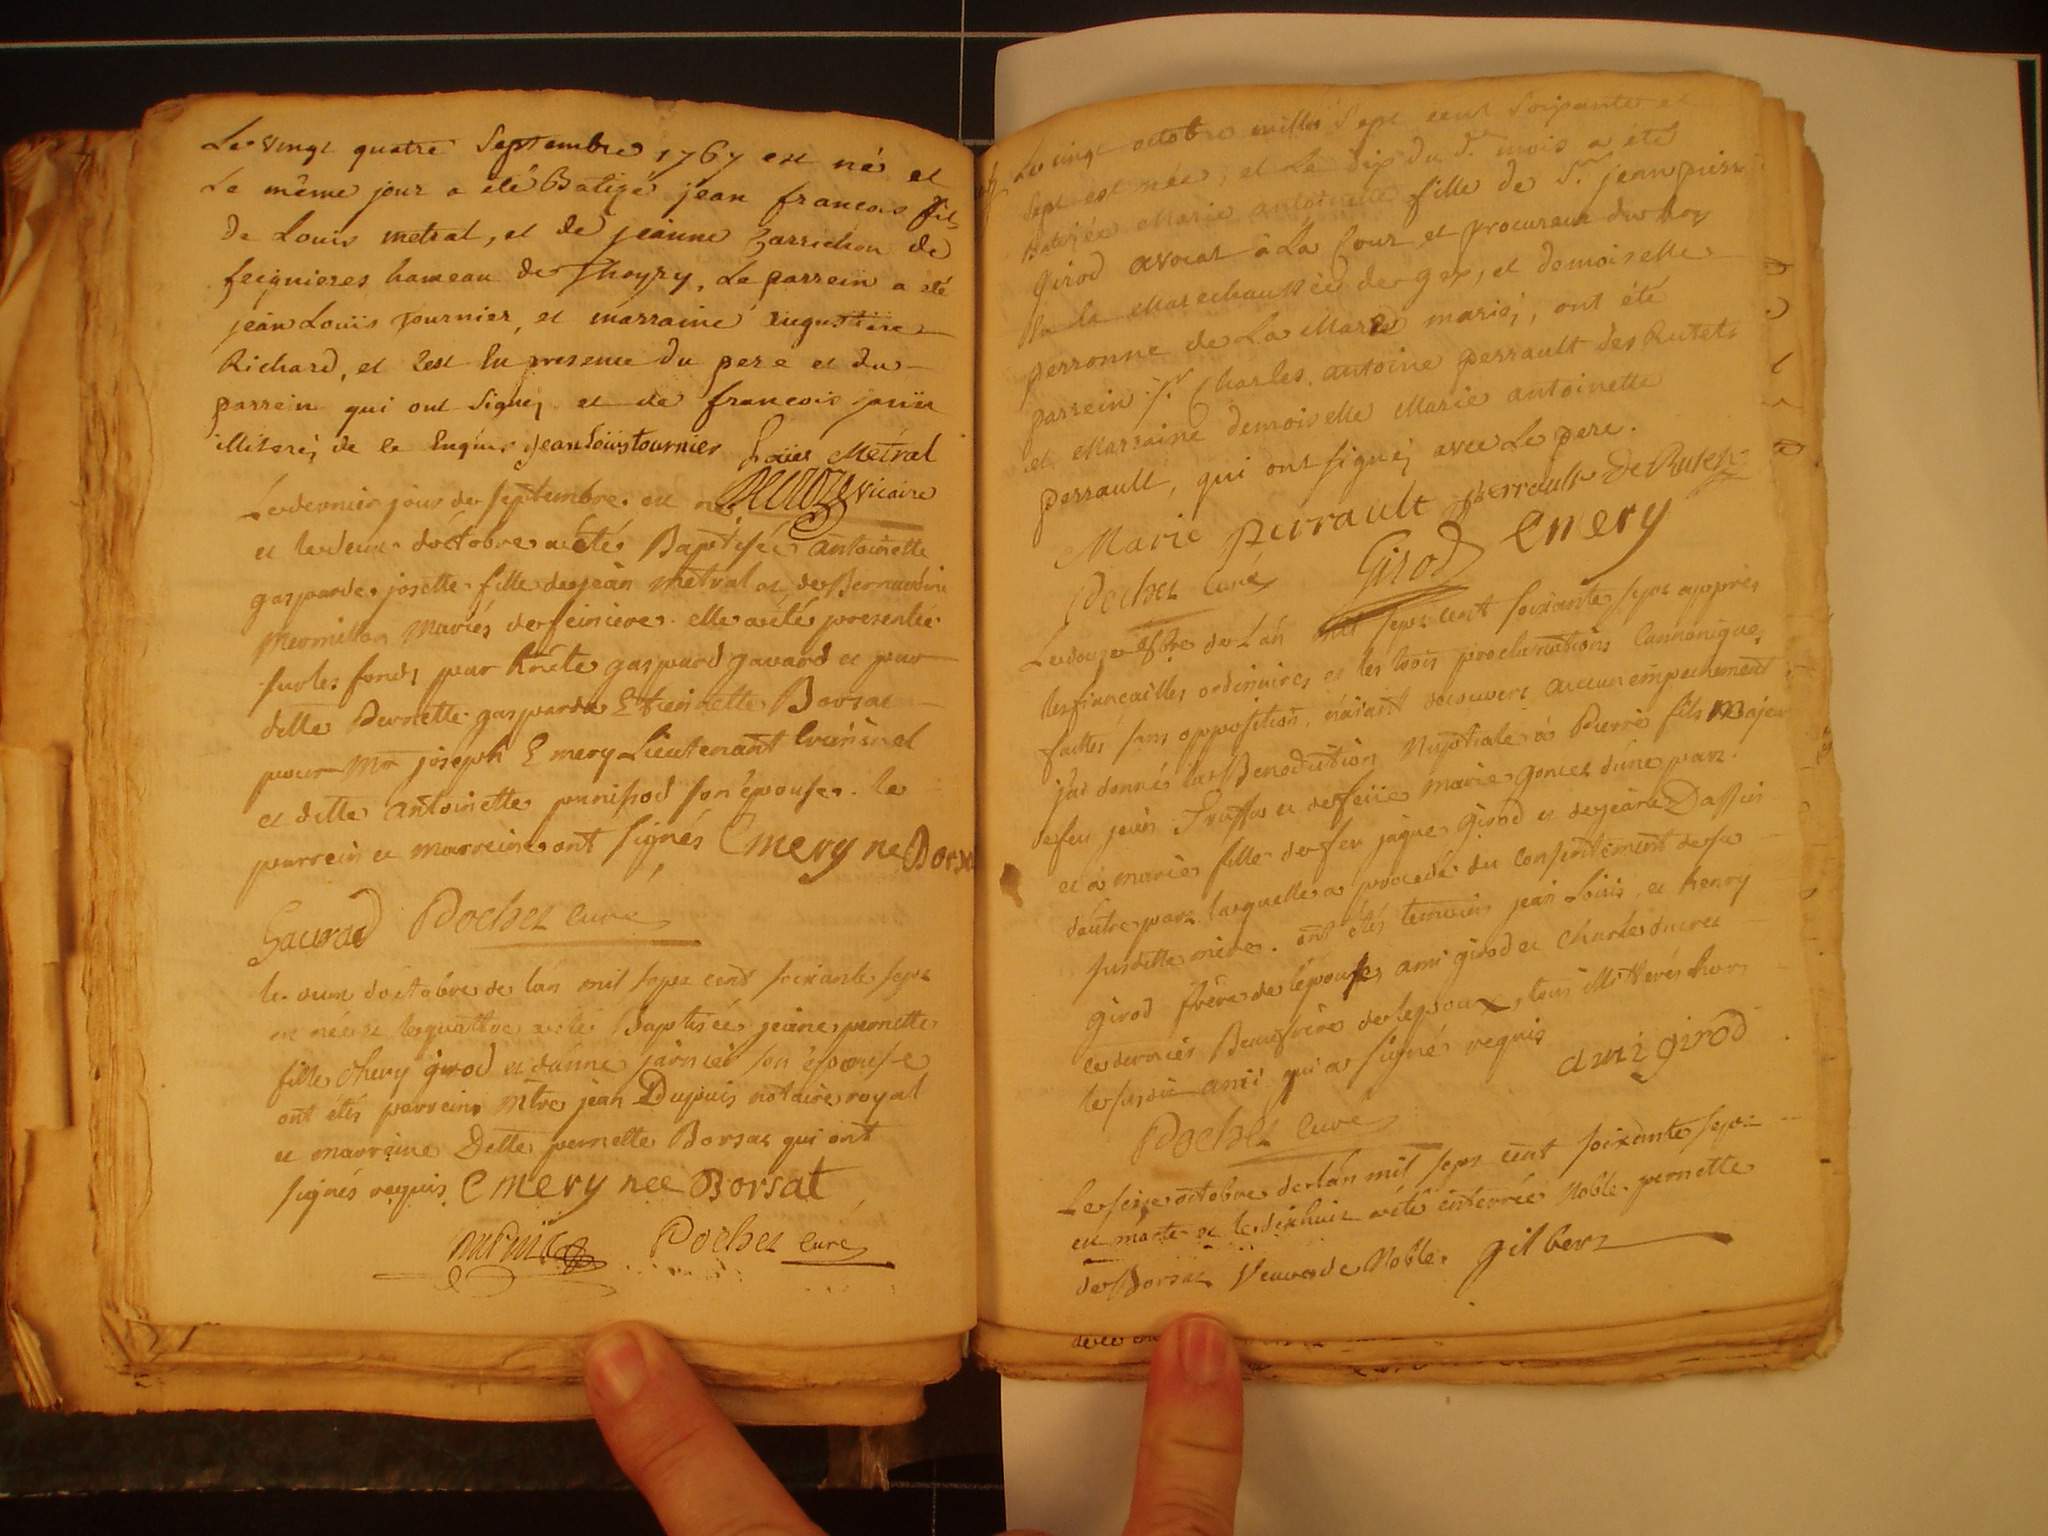 Le vingt quatre Septembre 1767 est né et
Le même jour a été Batizé jean francois fils
de Louis metral, et de jeanne
feignieres hameau de Thoyry, Le parrein a eté
jean Louïs Tournier, et marraine augustine
Richard, et c'est En presence du pere et du
parrein qui ont signéz et de francois
illiteréz de ce Enquis jean loüis tournier Loüis Metral
vicaire
Le dernier jour de septembre est né
et le deux d'octobre a été Baptisée antoinette
gasparde josette fille de jean metral et de Bernardine
mermillon mariés de feiniere elle a été presentée
sur les fonds par gaspard gavard et par
delle Pernette gasparde Etiennette Borsat
pour Mr joseph Emery Lieutenant Criminel
et delle antoinette son épouse. le
parrein et marreine ont signés Emery ne Borsat
Gavard Pochet curé
le deux d'octobre de l'an mil sept cent soixante sept
est née et le quatre a été Baptisée jeane pernette
fille d'henry girod et d'anne son épouse
ont étés parrein Mtre jean Dupuis notaire royal
et marreine Delle pernette Borsat qui ont
signés requis Emery nee Borsat
Dupuis Pochet curé
Le vingt octobre mille sept cent soixante et
sept est née, et le dix du dt mois a été
Batizée Marie antoinette fille de Sr. jean pierre
girod avocat à La Cour et procureur du Roy
En la Marechaussée de gex, et demoiselle
perronne de La Mare mariéz, ont été
parrein Sr. Charles antoine perrault des Rutets
et Marraine demoiselle Marie antoinette
perrault, qui ont signéz avec Le pere.
Marie perrault perrault De Rutet
Pochet curé Girod Emery
Le douze de l'an mil sept cent soixante sept apprès
les fiançailles ordinaires et les trois proclamations Cannoniques
faittes sans opposition, n'aiant decouvert aucun empechement
j'ai donné la Benediction Nuptiale à Pierre fils Majeur
de feu jean et de feüe marie d'une part
et à marie fille de feu jaque Girod et de jeane
d'autre part laquelle a procedé du consentement de sa
susditte mère. ont étés temoins jean Loüis et henry
girod frère de l'epouse, ami girod et Charles ducret
ce dernier Beaufrère de l'epoux, tous illitterés hors
le susdit ami qui a signé requis
ami girod
Pochet curé
Le seize octobre de l'an mil sept cent soixante sept
est morte et le dixhuit a été enterrée Noble pernette
de Borsat Veuve de Noble Gilbert